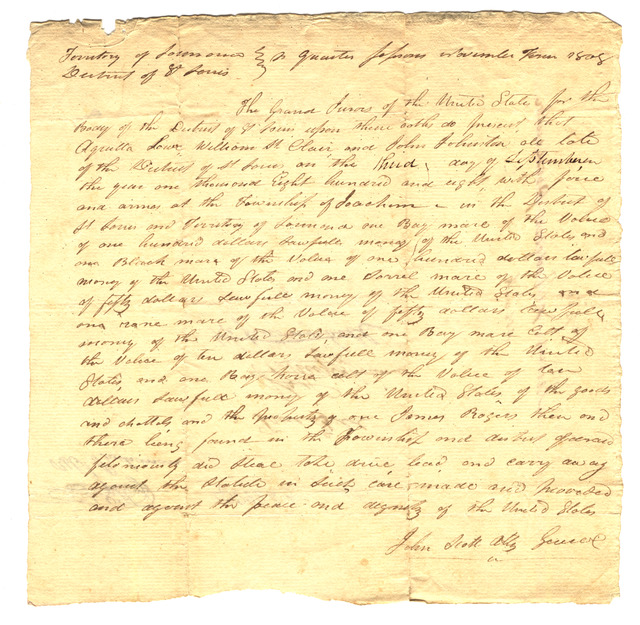 Territory of Louisiana } Quarter Sessions November Term 1808
District of St Louis
The Grand Jurors of the United States for the
Body of the District of St Louis upon their oaths do present that
Aquilla Lowe, William St Clair and John Johnston all late
of the District of St Louis on the third day of September in
the year one thousand Eight hundred and eight, with force
and arms at the Township of Joachim in the District of
St Louis and Territory of Louisiana one Bay mare of the Value
of one hundred dollars Lawfull money of the United States, and
one Black mare of the Value of one hundred dollars lawfull
money of the United States and one Sorrel mare of the Value
of fifty dollars Lawfull money of the United States, and
one mare of the Value of fifty dollars Lawfull
money of the United States, and one Bay mare Colt of
the Value of ten dollars, Lawfull money of the United
States, and one Bay horse colt of the Value of ten
dollars Lawfull money of the United States, of the goods
and chattels and the property of one James Rogers then and
there being found in the Township and district aforesaid
feloniously did Steal take drive lead and carry away
against the Statute in Such case made and provided
and against the peace and dignity of the United States
John Scott Atty General